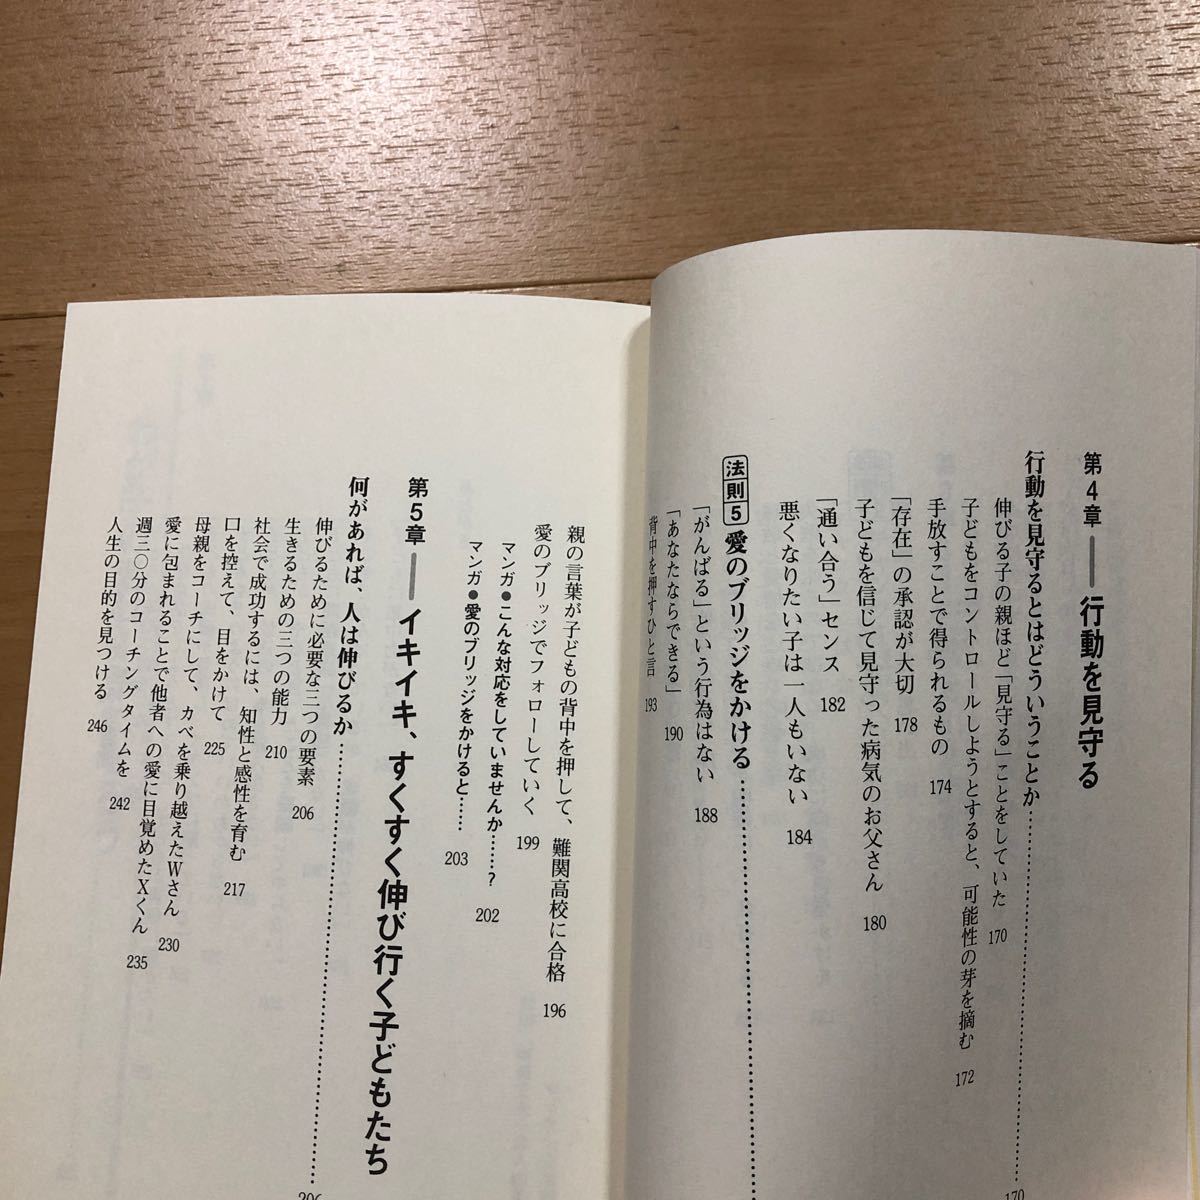 第4章──行動を見守る
行動を見守るとはどういうことか……………………………170
伸びる子の親ほど「見守る」ことをしていた 170
子どもをコントロールしようとすると、可能性の芽を摘む 172
手放すことで得られるもの 174
「存在」の承認が大切 178
子どもを信じて見守った病気のお父さん 180
「通い合う」センス 182
悪くなりたい子は一人もいない 184
法則5 愛のブリッジをかける……………………………
「がんばる」という行為はない 188
「あなたならできる」 190
背中を押すひと言 193
親の言葉が子どもの背中を押して、難関高校に合格 196
愛のブリッジでフォローしていく 199
マンガ●こんな対応をしていませんか……? 202
マンガ●愛のブリッジをかけると…… 203
第5章──イキイキ、すくすく伸び行く子どもたち
何があれば、人は伸びるか……………………………206
伸びるために必要な三つの要素 206
生きるための三つの能力 210
社会で成功するには、知性と感性を育む 217
口を控えて、目をかけて 225
母親をコーチにして、カベを乗り越えたWさん 230
愛に包まれることで他者への愛に目覚めたXくん 235
週三〇分のコーチングタイムを 242
人生の目的を見つける 246